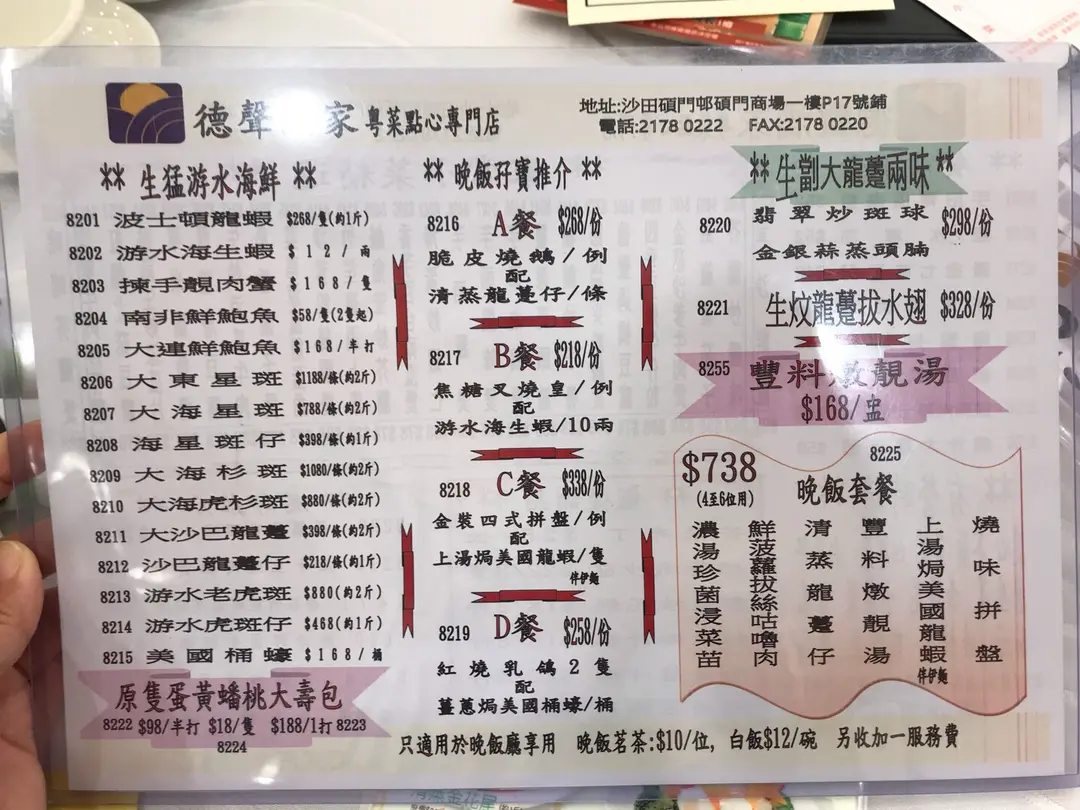 德聲 家 粵菜點心專門店
地址:沙田碩門邨碩門商場一樓P17號鋪
電話:2178 0222 FAX:2178 0220
** 生猛游水海鮮 **
8201 波士頓龍蝦 $268/隻(約1斤)
8202 游水海生蝦 $12/兩
8203 揀手靚肉蟹 $168/隻
8204 南非鮮鮑魚 $58/隻(2隻起)
8205 大連鮮鮑魚 $168/半打
8206 大東星斑 $1188/條(約2斤)
8207 大海星斑 $788/條(約2斤)
8208 海星斑仔 $398/條(約1斤)
8209 大海杉斑 $1080/條(約2斤)
8210 大海虎杉斑 $880/條(約2斤)
8211 大沙巴龍躉 $398/條(約2斤)
8212 沙巴龍躉仔 $218/條(約1斤)
8213 游水老虎斑 $880(約2斤)
8214 游水虎斑仔 $468(約1斤)
8215 美國桶蠔 $168/桶
原隻蛋黃蟠桃大壽包
8222 $98/半打 $18/隻 $188/1打 8223
8224
** 晚飯孖寶推介 **
8216 A餐 $268/份
脆皮燒鵝/例
配
清蒸龍躉仔/條
8217 B餐 $218/份
焦糖叉燒皇/例
配
游水海生蝦/10兩
8218 C餐 $338/份
金裝四式拼盤/例
配
上湯焗美國龍蝦/隻
伴伊麵
8219 D餐 $258/份
紅燒乳鴿2隻
配
薑蔥焗美國桶蠔/桶
** 生劏大龍躉兩味 **
8220 翡翠炒斑球 $298/份
金銀蒜蒸頭腩
8221 生炆龍躉拔水翅 $328/份
8255 豐料燉靚湯
$168/盅
$738 8225
(4至6位用) 晚飯套餐
燒味拼盤
上湯焗美國龍蝦
伴伊麵
豐料燉靚湯
清蒸龍躉仔
鮮菠蘿拔絲咕嚕肉
濃湯珍菌浸菜苗
只適用於晚飯廳享用 晚飯茗茶:$10/位, 白飯$12/碗 另收加一服務費